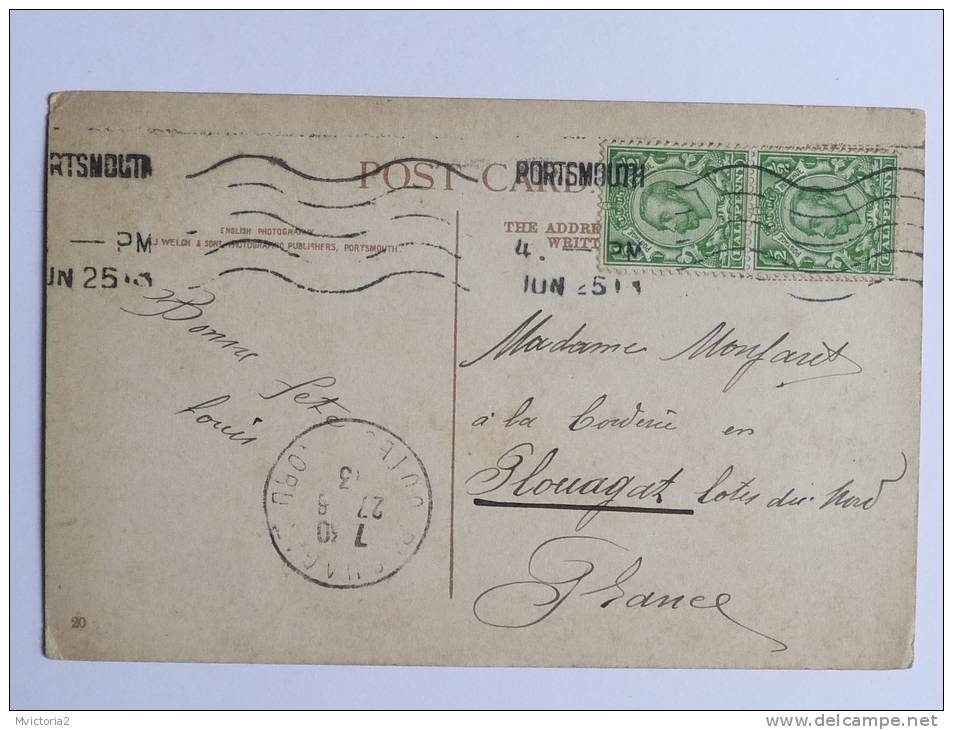 POST CARD
PORTSMOUTH
PM
JUN 25 13
ENGLISH PHOTOGRAPHY
J WELCH & SONS, PHOTOGRAPHIC PUBLISHERS, PORTSMOUTH
PORTSMOUTH
4. PM
JUN 25 13
THE ADDRE
WRITT
Bonne
fete
Louis
Madame Monfaret
à la Corderie en
Plouagat Cotes du Nord
France
7 30
27 6
13
20
Mvictoria2
www.delcampe.net